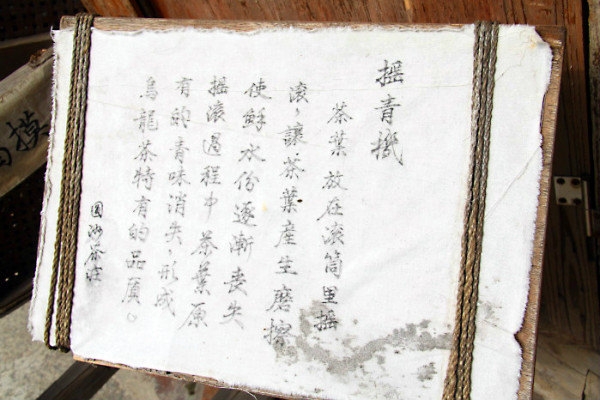 搖青機
茶葉放在滾筒里搖
滾、讓茶葉產生磨擦
使鮮水份逐漸喪失
搖滾過程中茶葉原
有的青味消失、形成
烏龍茶特有的品質。
茶莊